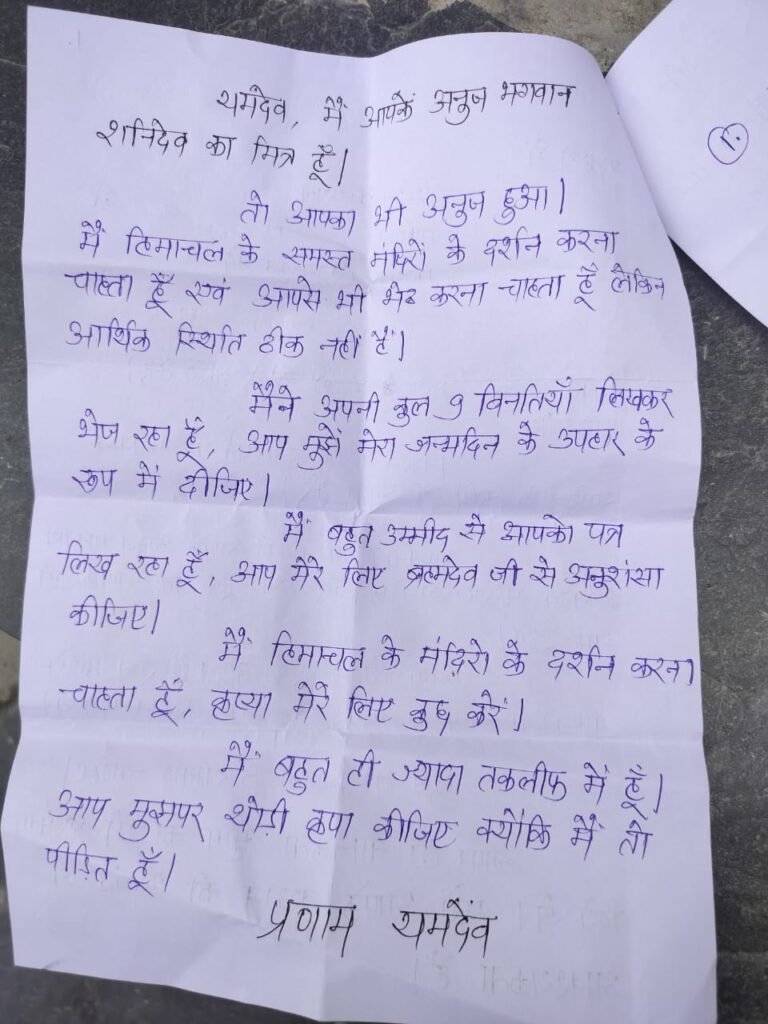 यमदेव, मैं आपकें अनुज भगवान
शनिदेव का मित्र हूँ।
तो आपका भी अनुज हुआ।
मैं हिमाचल के समस्त मंदिरों के दर्शन करना
चाहता हूँ एवं आपसे भी भेंट करना चाहता हूँ लेकिन
आर्थिक स्थिति ठीक नहीं हैं।
मैंने अपनी कुल 9 विनतियाँ लिखकर
भेज रहा हूँ, आप मुझें मेरा जन्मदिन के उपहार के
रूप में दीजिए।
मैं बहुत उम्मीद से आपको पत्र
लिख रहा हूँ, आप मेरे लिए ब्रह्मदेव जी से अनुशंसा
कीजिए।
मैं हिमाचल के मंदिरो के दर्शन करना
चाहता हूँ, कृप्या मेरे लिए कुछ करें।
मैं बहुत ही ज्यादा तकलीफ में हूँ।
आप मुझपर थोड़ी कृपा कीजिए क्योंकि मैं तो
पीड़ित हूँ।
प्रणाम यमदेव